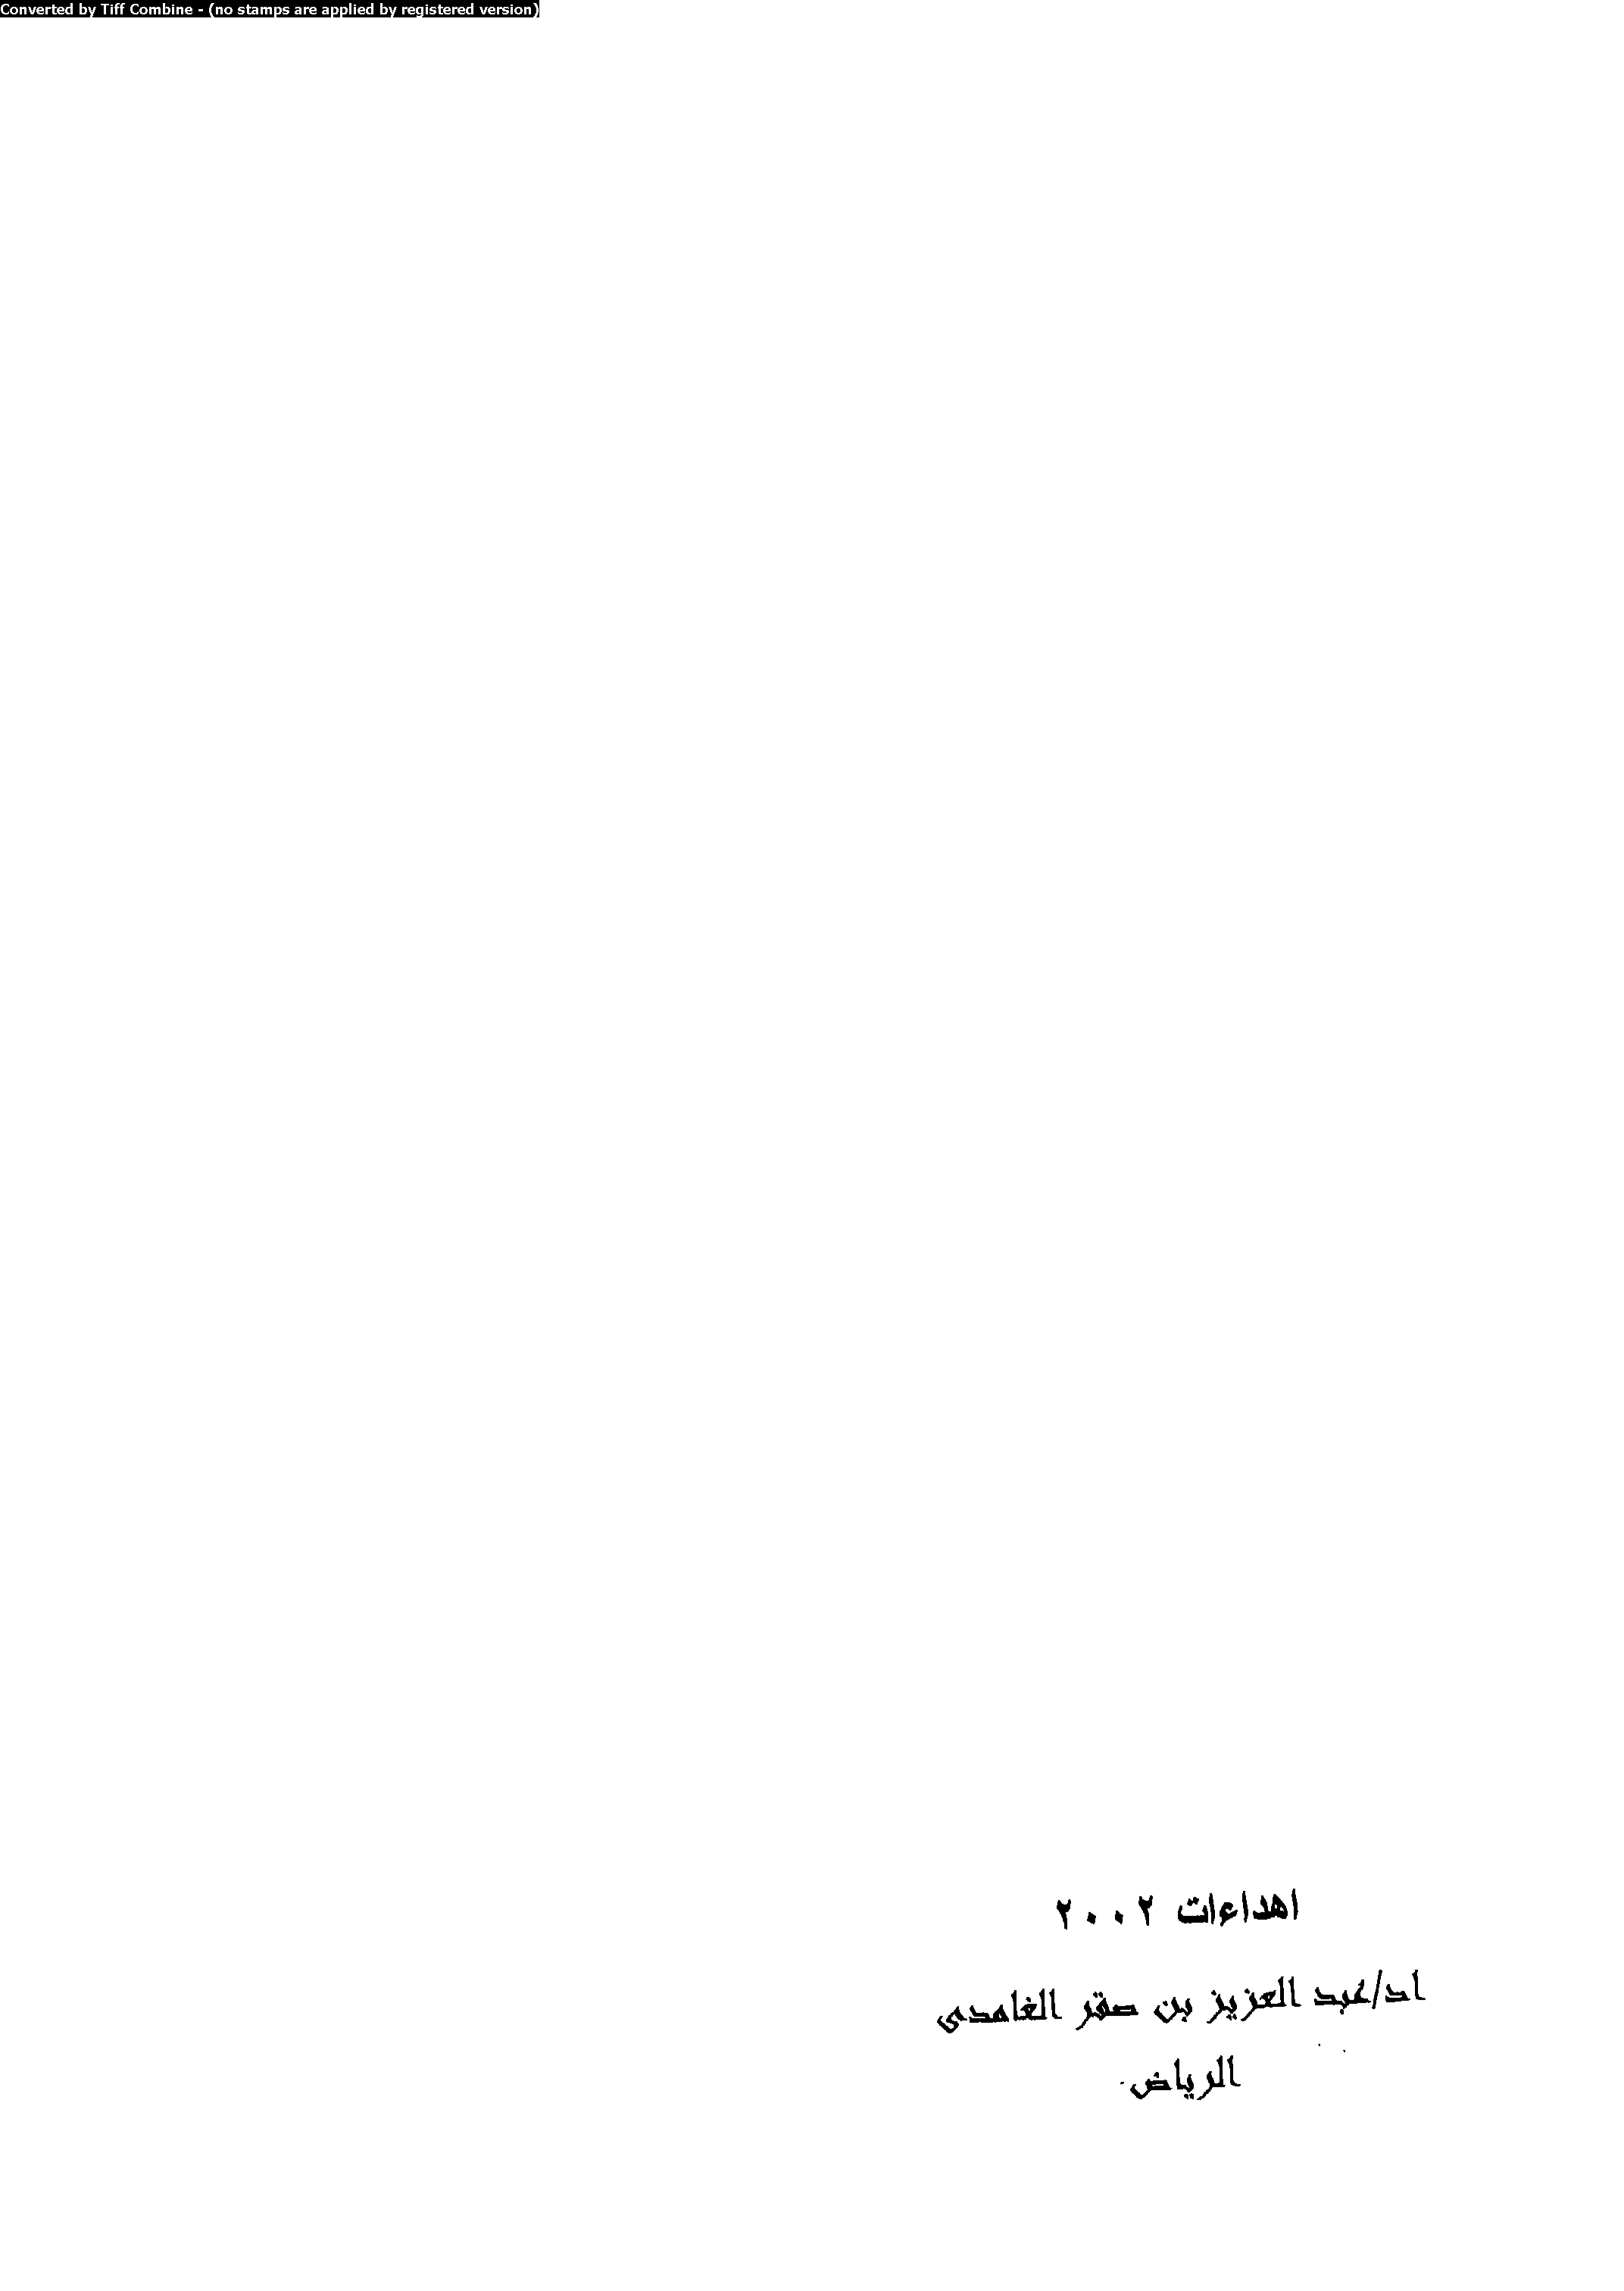 Converted by Tiff Combine - (no stamps are applied by registered version)
اهداءات ٢٠٠٢
اد/عبد العزيز بن صقر الغامدى
الرياض